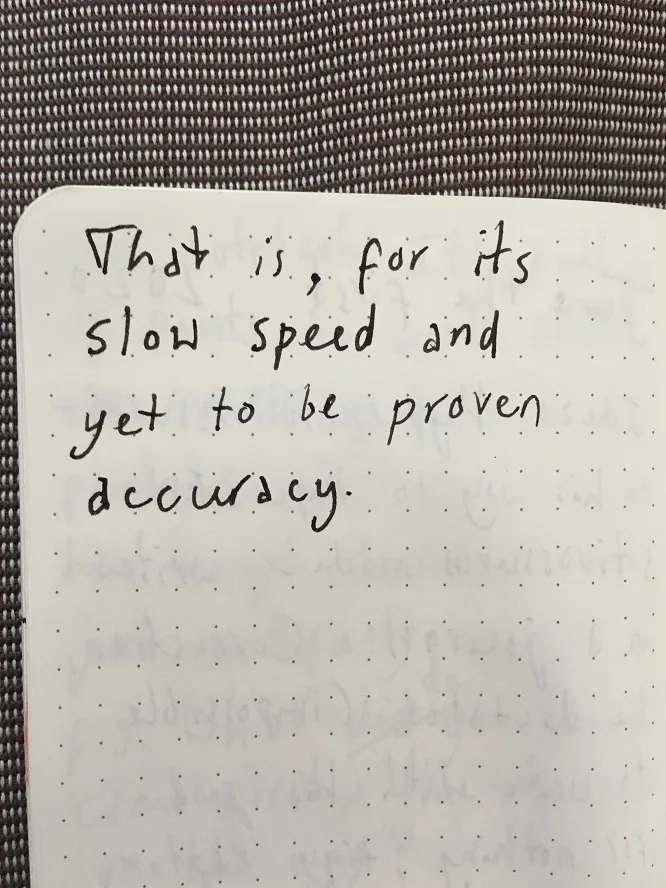 That is, for its
slow speed and
yet to be proven
accuracy.